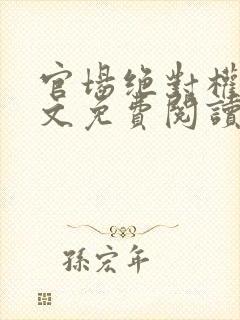 官場絕對權
文免費閱讀
孫宏年